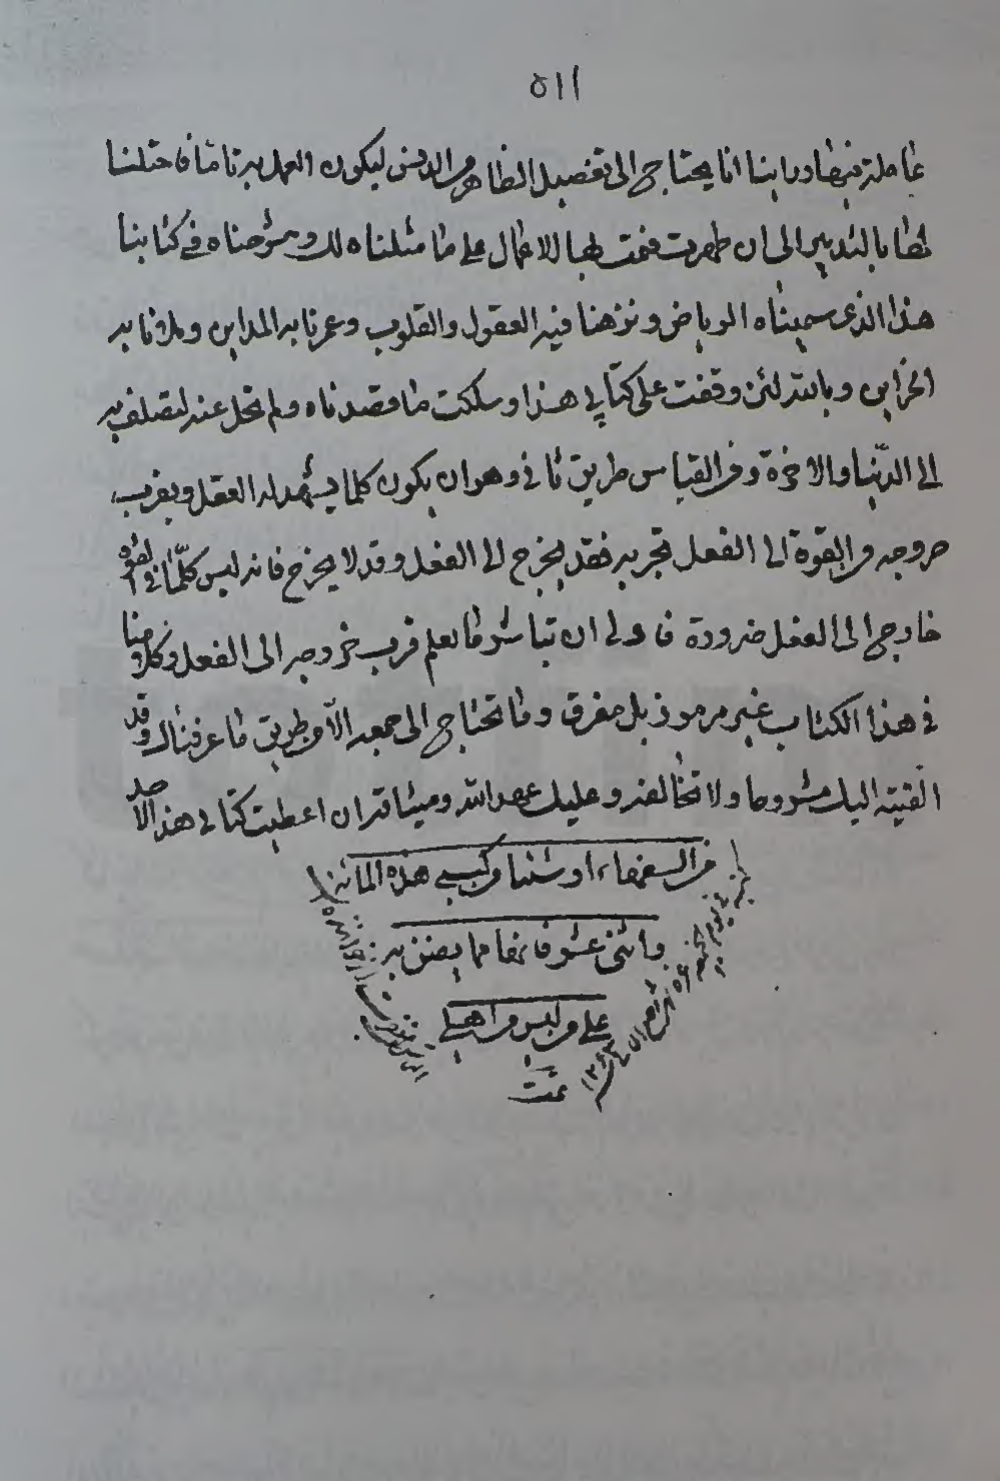 ٥١١
عاملة فيها ورأينا انا يحتاج الى تفصيل الظاهر من الدنس ليكون العمل به تاما فاحتلنا
لها بالتدبير الى ان طهرت فتمت لها الاعمال على ما مثلناه لك وشرحناه في كتابنا
هذا الذى سميناه الرياض ونزهنا فيه العقول والقلوب وعمرنا به المداين وملانا به
الخزاين وبالله لئن وقفت على كتابي هذا وسلكت ما قصدناه ولم تحل عنه لتصلن به
الى الدنيا والاخرة ومن القياس طريق ثاني وهو ان يكون كلما يشهد له العقل ويقرب
خروجه من القوة الى الفعل تجربه فقد يخرج الى الفعل وقد لا يخرج فانه ليس كلما في القوة
خارج الى الفعل ضرورة فاولى ان تباشر ما يعلم قرب خروجه الى الفعل وكلامنا
في هذا الكتاب غير مرموز بل مفرق وما تحتاج الى جمعه الا من طريق ما عرفناك وقد
القيته اليك مشروحا ولا تخالفه وعليك عهد الله وميثاقه ان اعطيت كتابي هذا لاحد
من السفهاء او شيئا من كتبي هذه المائة
واثنى عشر فانها مما يضن به
على من ليس من اهله
تمت